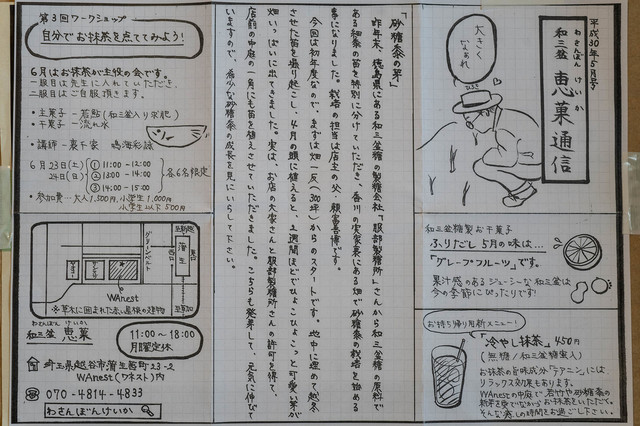 平成30年5月号
わさんぼん けいか
和三盆 恵菓通信
大きく
なぁれ
「砂糖黍の芽」
昨年末、徳島県にある和三盆糖の製糖会社「服部製糖所」さんから和三盆糖の原料で
ある細黍の苗を特別に分けていただき、香川の実家裏にある畑で砂糖黍の栽培を始める
事になりました。栽培の担当は店主の父、頼富喜博です。
今回は初年度なので、まずは畑一反(300坪)からのスタートです。地中に埋めて越冬
させた苗を掘り起こし、4月の頭に植えると、2週間ほどでひょこひょこっと可愛い芽が
畑いっぱいに出てきました。実は、お店の大家さんと服部製糖所さんの許可を得て、
店前の中庭の一角にも苗を植えさせていただきました。こちらも発芽して、元気に伸びて
いますので、希少な砂糖黍の成長を見にいらして下さい。
和三盆糖製お干菓子
ふりだし 5月の味は…
「グレープフルーツ」です。
果汁感のあるジューシーな和三盆は
今の季節にぴったりです!
お持ち帰り用新メニュー!
「冷やし抹茶」450円
(無糖/和三盆糖蜜入)
お抹茶の旨味成分「テアニン」には
リラックス効果もあります。
WAnestの中庭で、若竹や砂糖黍の
新芽を愛でながらお抹茶をいただいて、
そんな癒しの時間をお過ごし下さい。
第3回ワークショップ
自分でお抹茶を点ててみよう!
6月はお抹茶が主役の会です。
一服目は先生に入れていただき、
二服目はご自服頂きます。
・主菓子 - 若鮎(和三盆入り求肥)
・干菓子 - 流れ水
・講師 - 裏千家 鳴海彩詠
6月23日(土)
24日(日)
① 11:00 - 12:00
② 13:00 - 14:00
③ 14:00 - 15:00
各6名限定
・参加費 - 大人1,500円、小学生1,000円
小学生以下500円
グリーンベルト
蒲生
WAnest
※草木に囲まれた赤い屋根の建物
わさんぼん けいか
和三盆 恵菓
11:00〜18:00
月曜定休
埼玉県越谷市蒲生茜町23-2
WAnest(ワネスト)内
070-4814-4833
わさんぼんけいか